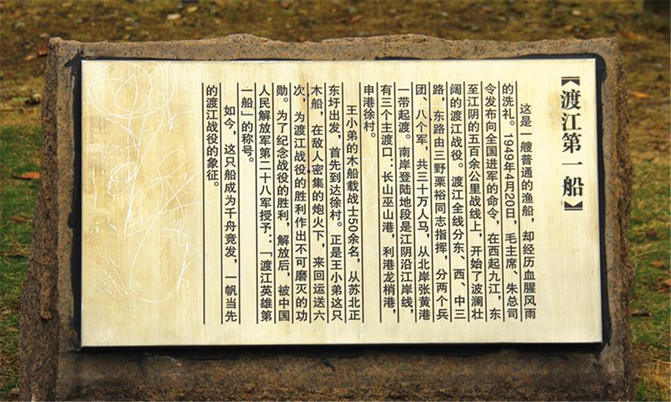 【渡江第一船】
这是一艘普通的渔船，却经历血腥风雨
的洗礼。1949年4月20日，毛主席、朱总司
令发布向全国进军的命令，在西起九江，东
至江阴的五百余公里战线上，开始了波澜壮
阔的渡江战役。渡江全线分东、西、中三
路，东路由三野粟裕同志指挥，分两个兵
团、八个军，共三十万人马，从北岸张黄港
一带起渡。南岸登陆地段是江阴沿江岸线，
有三个主渡口：长山巫山港，利港龙梢港，
申港徐村。
王小弟的木船载战士50余名，从苏北正
东圩出发，首先到达徐村。正是王小弟这只
木船，在敌人密集的炮火下，来回运送六
次，为渡江战役的胜利作出不可磨灭的功
勋。为了纪念战役的胜利，解放后，被中国
人民解放军第二十八军授予：「渡江英雄第
一船」的称号。
如今，这只船成为千舟竞发，一帆当先
的渡江战役的象征。